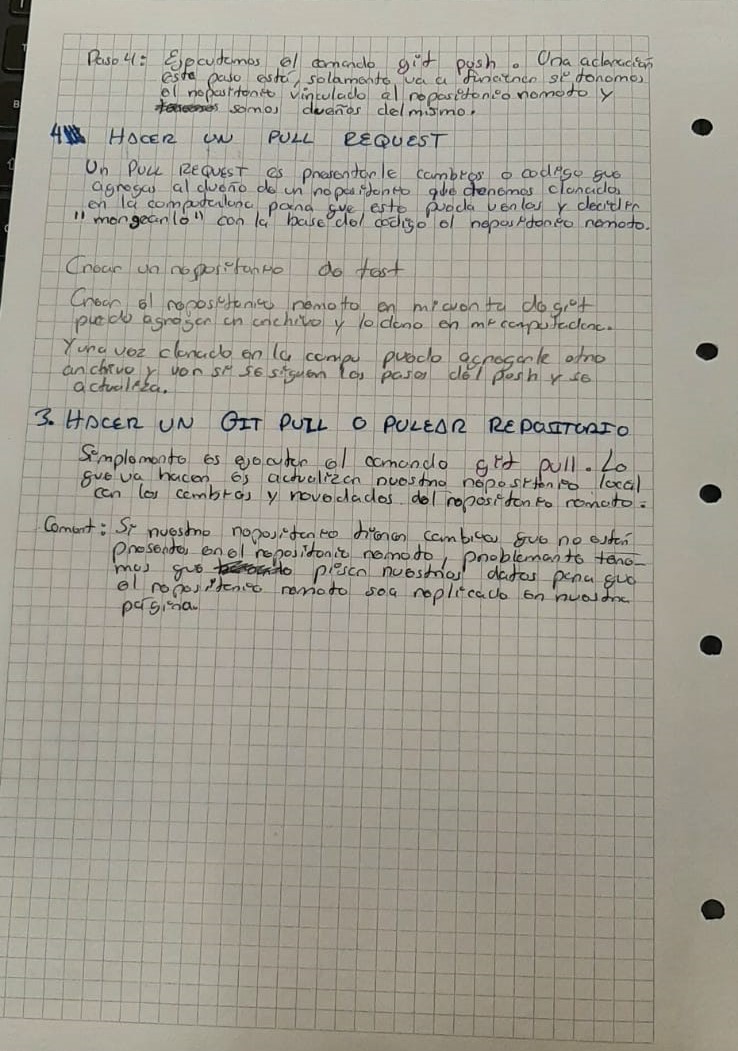 Paso 4: Ejecutamos el comando git push. Una aclaración
este paso está, solamente va a funcionar si tenemos
el repositorio vinculado al repositorio remoto y
somos dueños del mismo.
4 HACER UN PULL REQUEST
Un PULL REQUEST es presentarle cambios o codigo que
agregas al dueño de un repositorio que tenemos clonado
en la computadora para que este pueda verlos y decidir
"mergearlo" con la base del codigo el repositorio remoto.
Crear un repositorio de test
Crear el repositorio remoto en mi cuenta de git
puedo agregar un archivo y lo clono en mi computadora.
Y una vez clonado en la compu puedo agregarle otro
archivo y ver si se siguen los pasos del push y se
actualiza.
3. HACER UN GIT PULL O PULEAR REPOSITORIO
Simplemente es ejecutar el comando git pull. Lo
que va hacer es actualizar nuestro repositorio local
con los cambios y novedades del repositorio remoto.
Coment: Si nuestro repositorio tienen cambios que no estén
presentes en el repositorio remoto, problemante tene-
mos que pisen nuestros datos para que
el repositorio remoto sea replicado en nuestra
página.